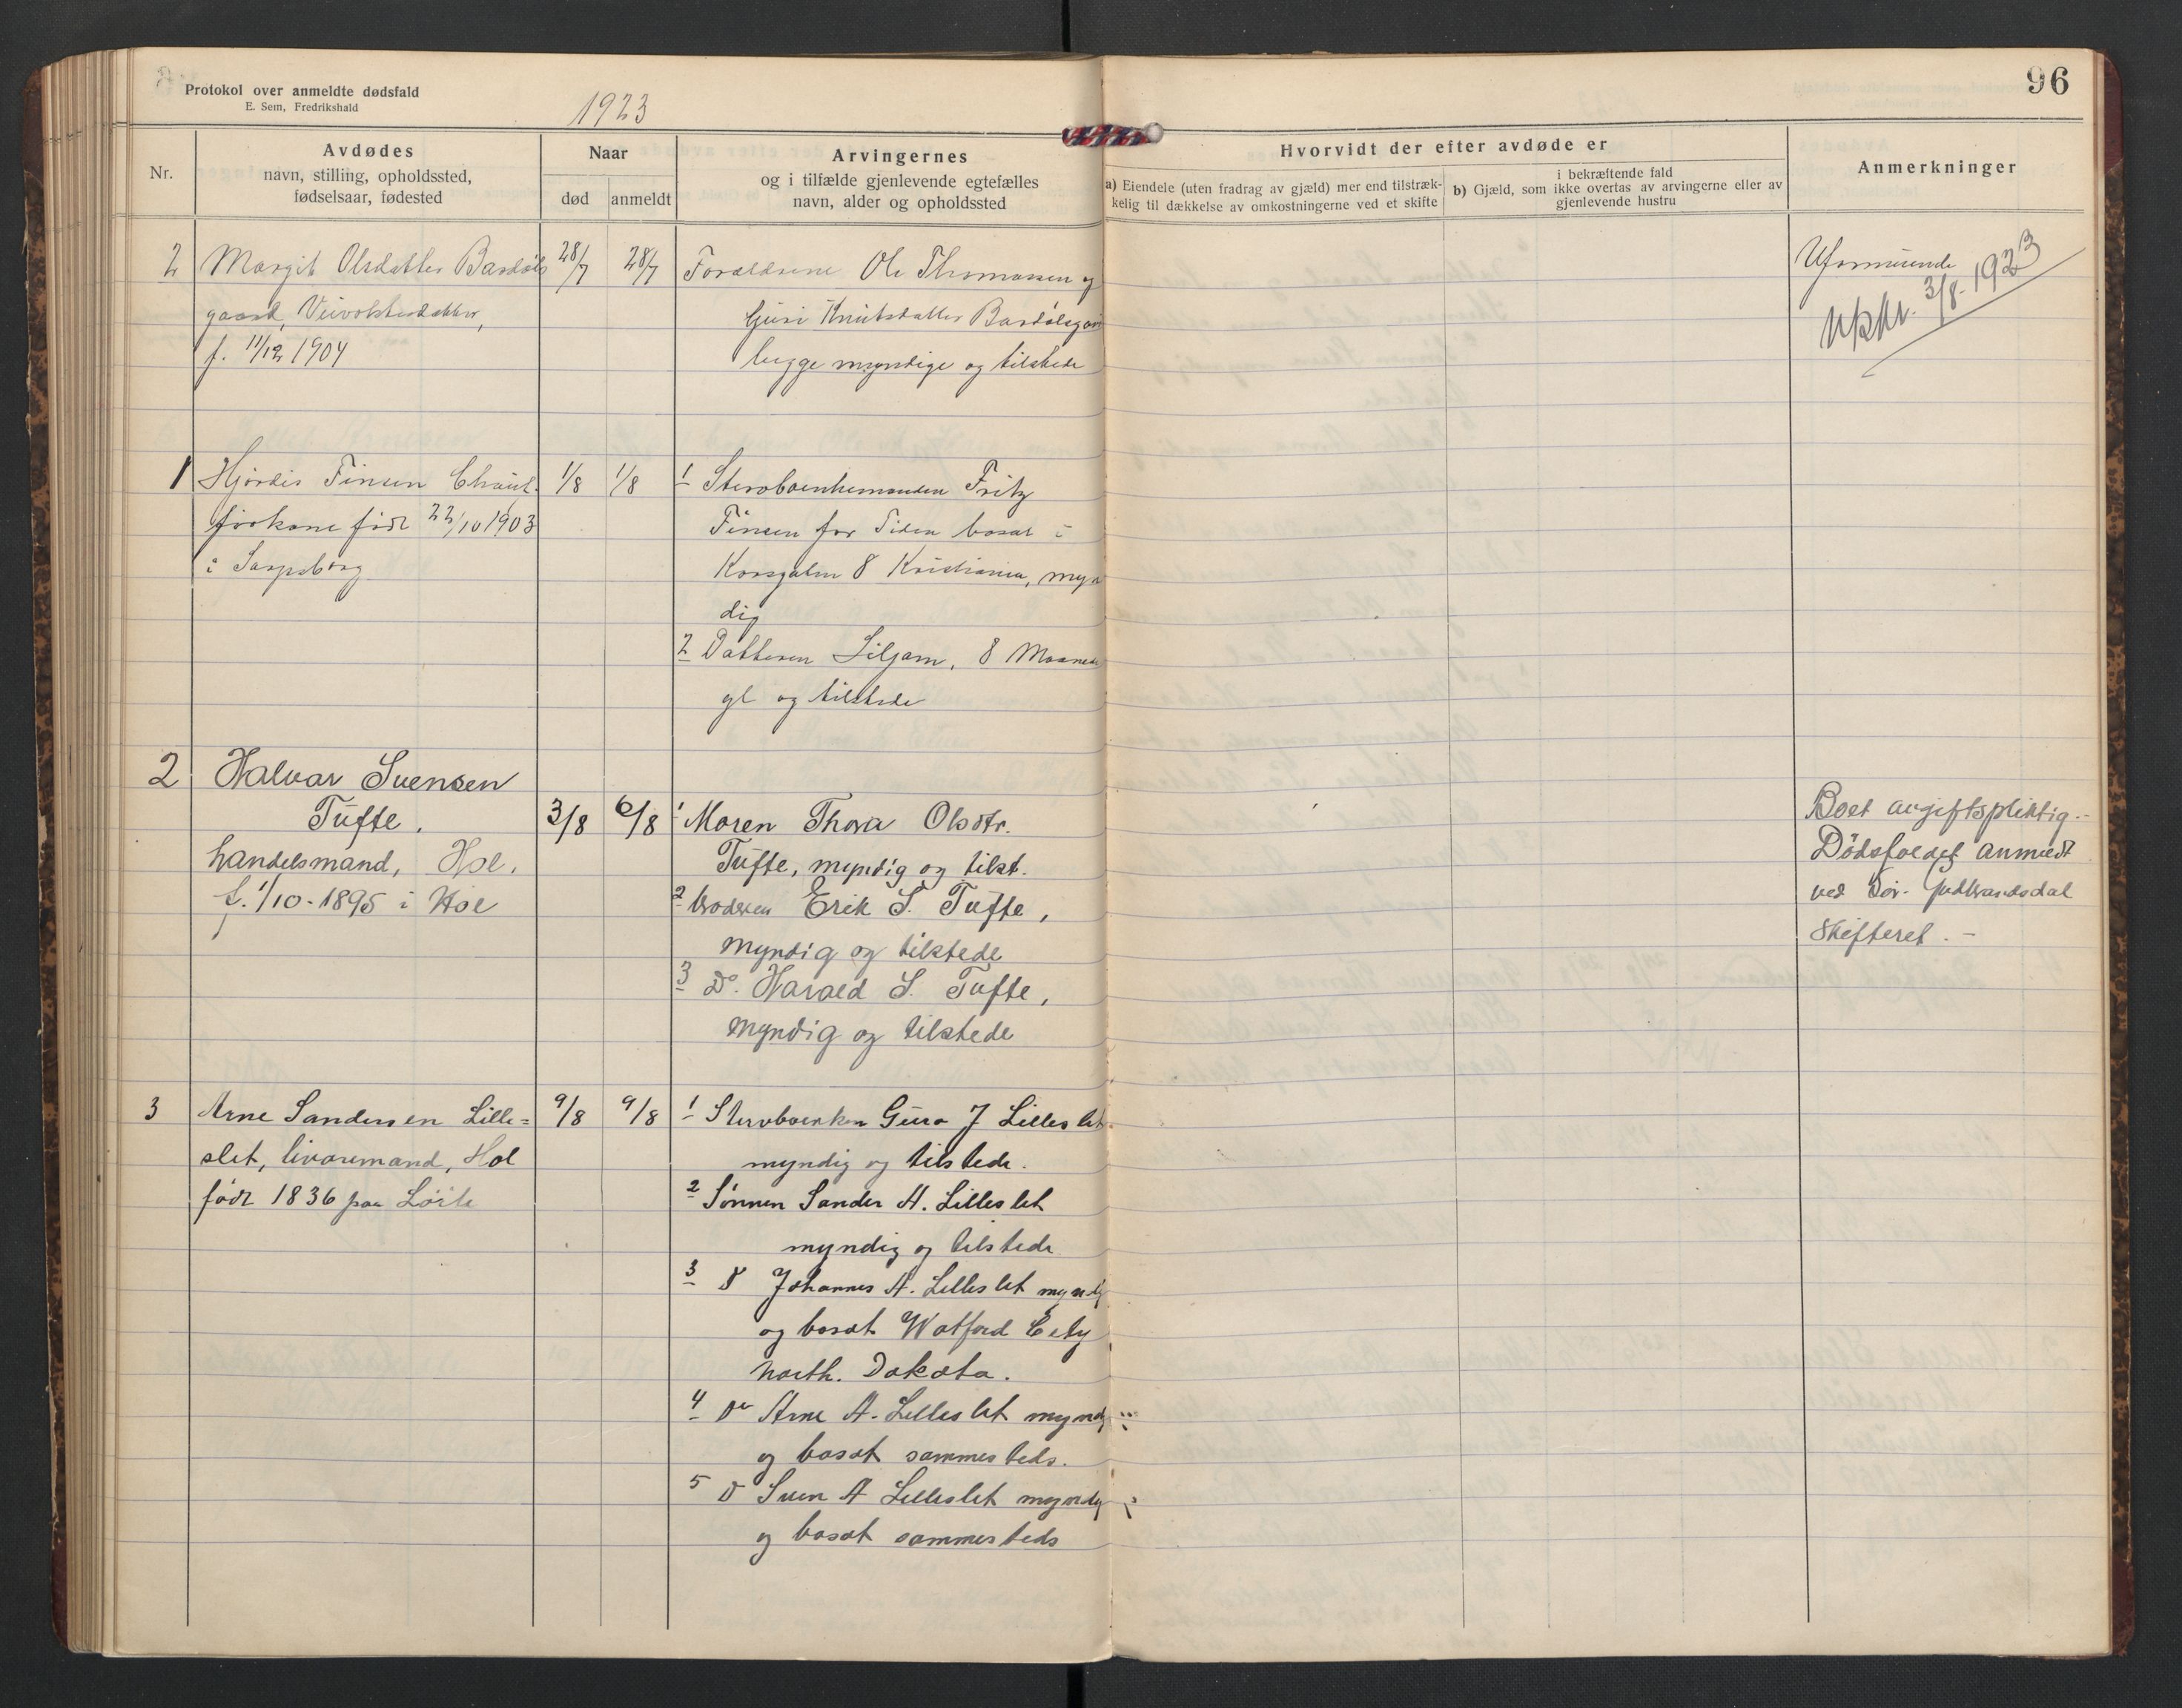 96
Protokol over anmeldte dødsfald
E. Sem, Fredrikshald
1923
Nr.
Avdødes
navn, stilling, opholdssted,
fødselsaar, fødested
Naar
død
anmeldt
Arvingernes
og i tilfælde gjenlevende egtefælles
navn, alder og opholdssted
Hvorvidt der efter avdøde er
a) Eiendele (uten fradrag av gjæld) mer end tilstræk-
kelig til dækkelse av omkostningerne ved et skifte
i bekræftende fald
b) Gjæld, som ikke overtas av arvingerne eller av
gjenlevende hustru
Anmerkninger
2 Margit Olsdatter Bardøls 28/7 28/7 Forældrene Ole Thomassen og
gaard, Veivokterdatter, Guri Knutsdatter Bardølsgaar
f. 11/12 1904 begge myndige og tilstede
Uformuende
3/8-1923
1 Hjørdis Finsen Chauf- 1/8 1/8 1 Stervboenkemanden Fritz
førkone født 22/10 1903 Finsen for Tiden bosat i
i Sarpsborg Korsgaten 8 Kristiania, myn
dig
2 Datteren Liljam, 8 Maaneder
gl og tilstede
2 Halvar Svensen
Tufte, 3/8 6/8 1 Moren Thora Olsdtr.
handelsmand, Hol, Tufte, myndig og tilst.
f. 1/10-1895 i Hol 2 broderen Erik S. Tufte,
myndig og tilstede
3 Do. Harald S. Tufte,
myndig og tilstede
Boet avgiftspliktig.-
Dödsfaldet anmeldt
ved Sör- Gudbrandsdal
skifteret. -
3 Arne Sandersen Lille= 9/8 9/8 1 Stervboenken Guro J Lilleslet
slet, livøremand, Hol myndig og tilstede.
født 1836 paa 2 Sønnen Sander A. Lilleslet
myndig og tilstede
3 D Johannes A. Lilleslet myndig
og bosat Watford City
North. Dakota.
4 Do Arne A. Lilleslet myndig
og bosat sammesteds.
5 D Sven A Lilleslet myndig
og bosat sammesteds